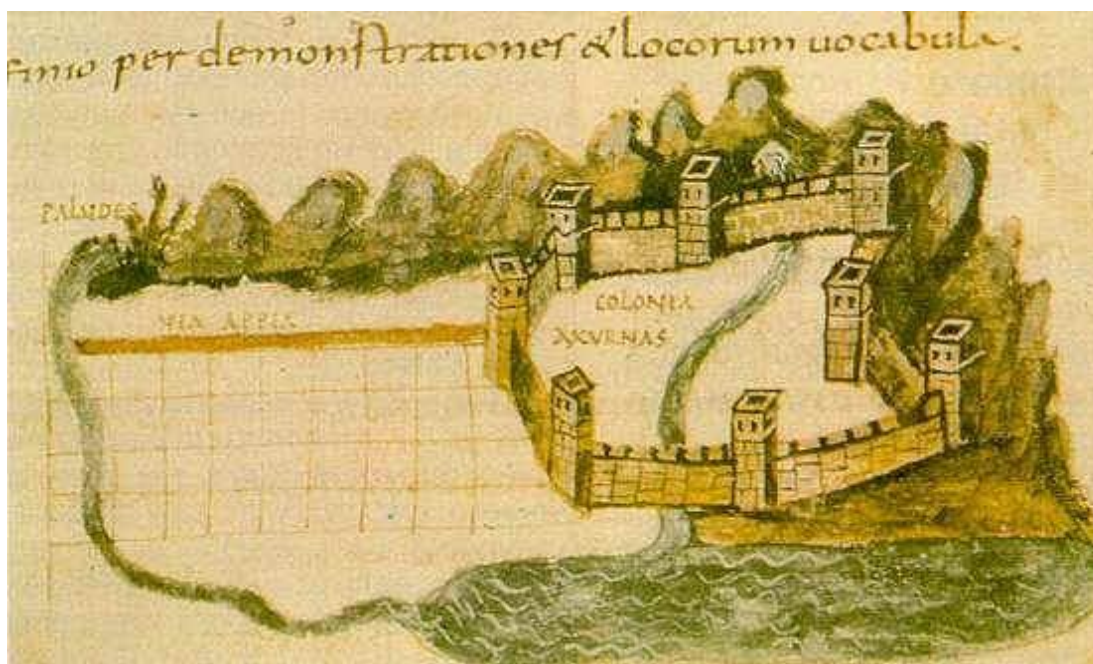 finio per demonstrationes & locorum uocabula.
PALUDES
VIA APPIA
COLONIA
AXVRNAS